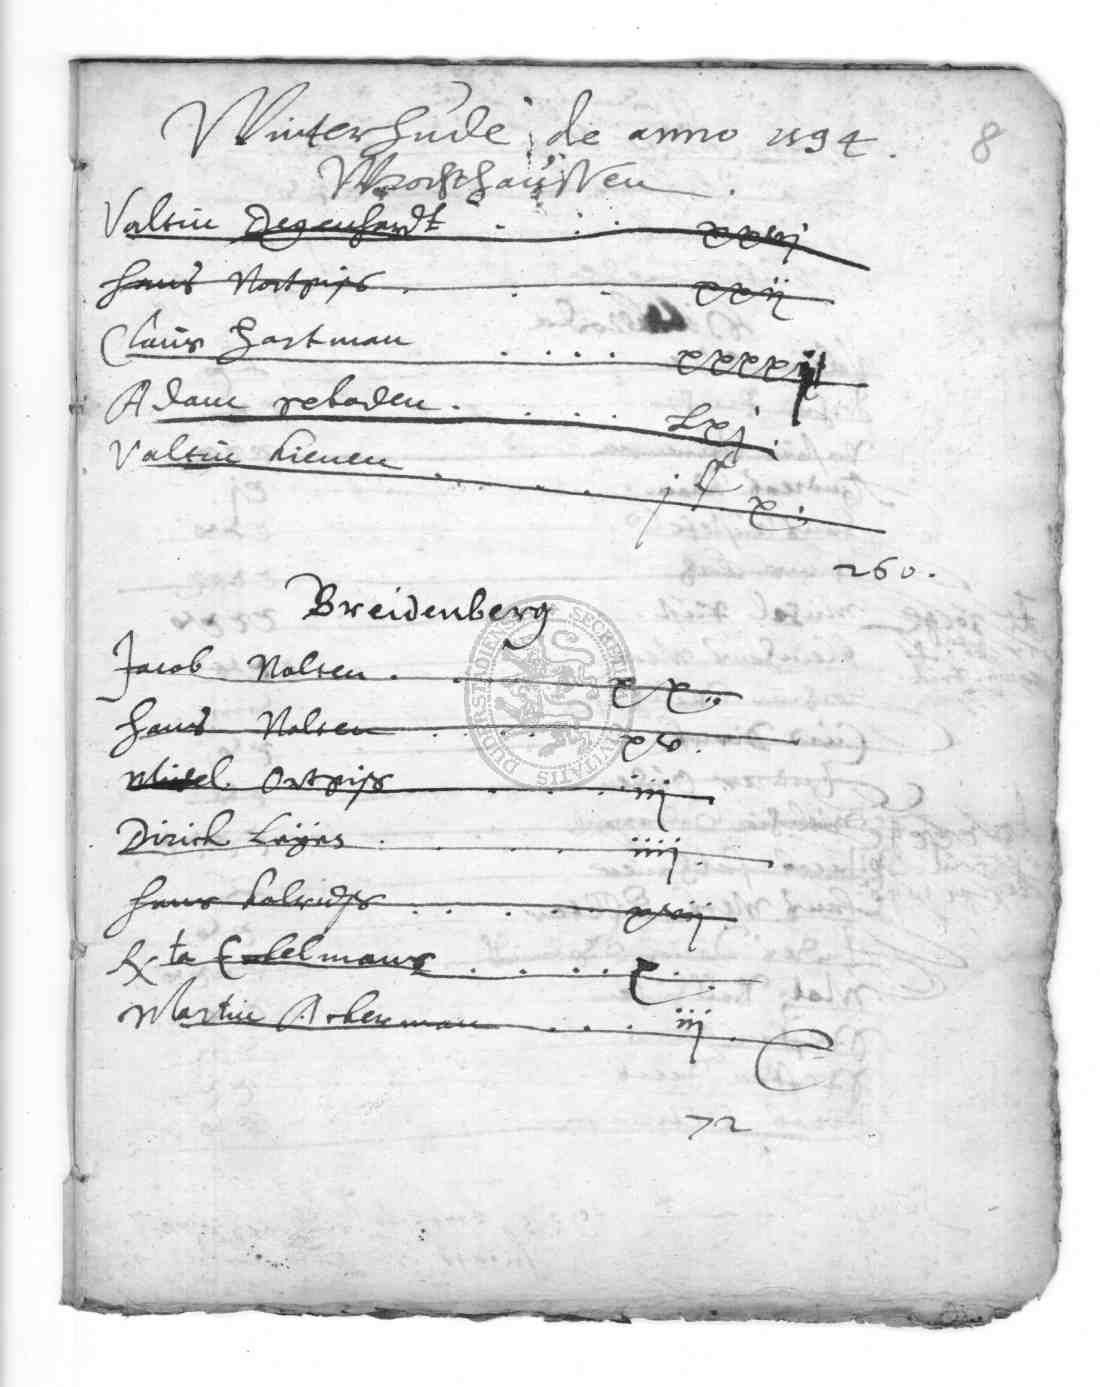 Winterhude de anno 1594. 8
Valtin Degenhardt . . . xxiij
Hans Nortpips . . . xxij
Claus Hartman . . . .
Adam reboden . . . . Lxj
Valtin Lienen . . . . j C x
260.
Breidenberg
Jacob Nolten . . xx
Hans Nolten . . . xv.
Michel Ortpips . . . iij
Dirich . . . . iiij
Hans . . . . xvij
Rx ta Eselmans . . . . x.
Martin Ackerman . . . iij
72